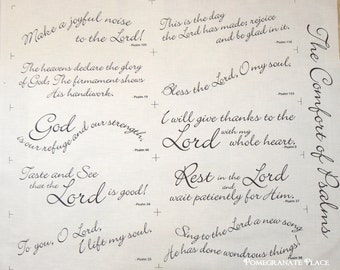 Make a joyful noise
to the Lord!
Psalm 100
The heavens declare the glory
of God; The firmament shows
His handiwork.
Psalm 19
God
is our refuge and our strength.
Psalm 46
Taste and See
that the
Lord is good!
Psalm 34
To you, O Lord,
I lift my soul.
Psalm 25
This is the day
the Lord has made; rejoice
and be glad in it.
Psalm 118
Bless the Lord, O my soul.
I will give thanks to the
Lord with my
whole heart.
Rest in the Lord
and
wait patiently for Him.
Psalm 37
Sing to the Lord a new song
He has done wondrous things!
The Comfort of Psalms
Pomegranate Place